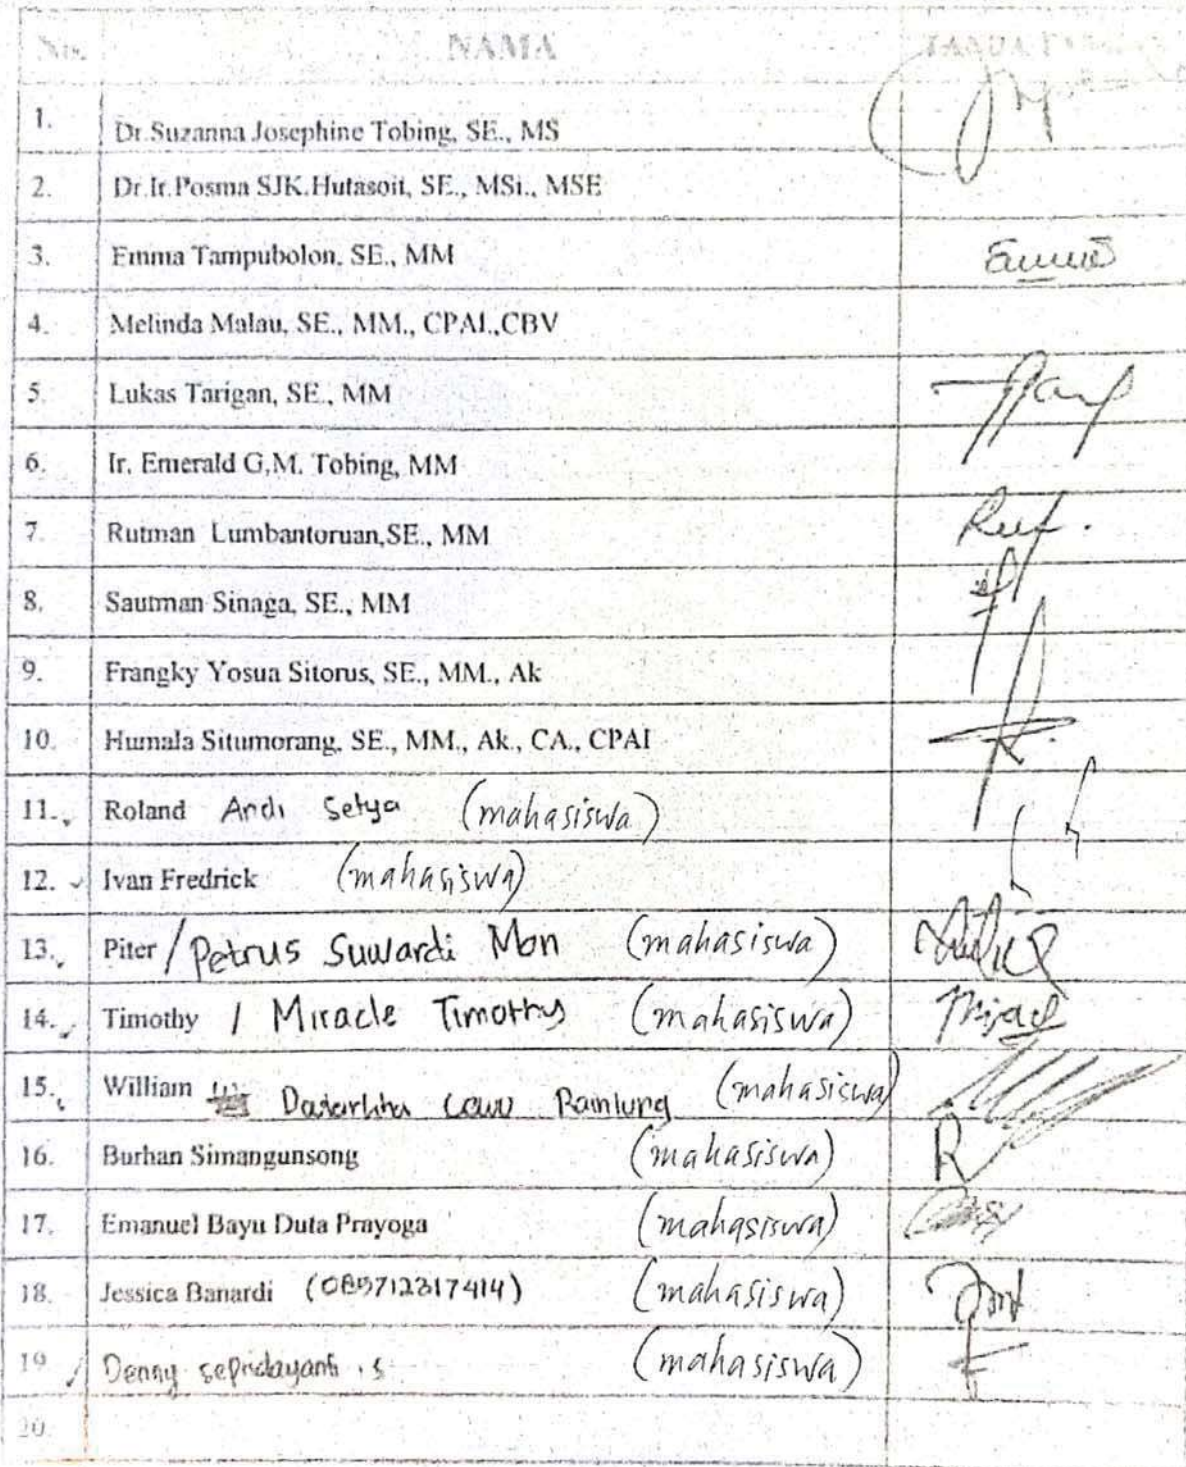 No. NAMA TANDA
1. Dr.Suzanna Josephine Tobing, SE., MS
2. Dr.Ir.Posma SJK.Hutasoit, SE., MSi., MSE
3. Emma Tampubolon, SE., MM
4. Melinda Malau, SE., MM., CPAI.,CBV
5. Lukas Tarigan, SE., MM
6. Ir. Emerald G,M. Tobing, MM
7. Rutman Lumbantoruan,SE., MM
8. Sautman Sinaga, SE., MM
9. Frangky Yosua Sitorus, SE., MM., Ak
10. Humala Situmorang, SE., MM., Ak., CA., CPAI
11. Roland Andi Setya (mahasiswa)
12. Ivan Fredrick (mahasiswa)
13. Piter / Petrus Suwardi Mon (mahasiswa)
14. Timothy / Miracle Timothy (mahasiswa)
15. William (mahasiswa)
16. Burhan Simangunsong (mahasiswa)
17. Emanuel Bayu Duta Prayoga (mahasiswa)
18. Jessica Banardi (085712317414) (mahasiswa)
19. Denny sepridayanti .s (mahasiswa)
20.